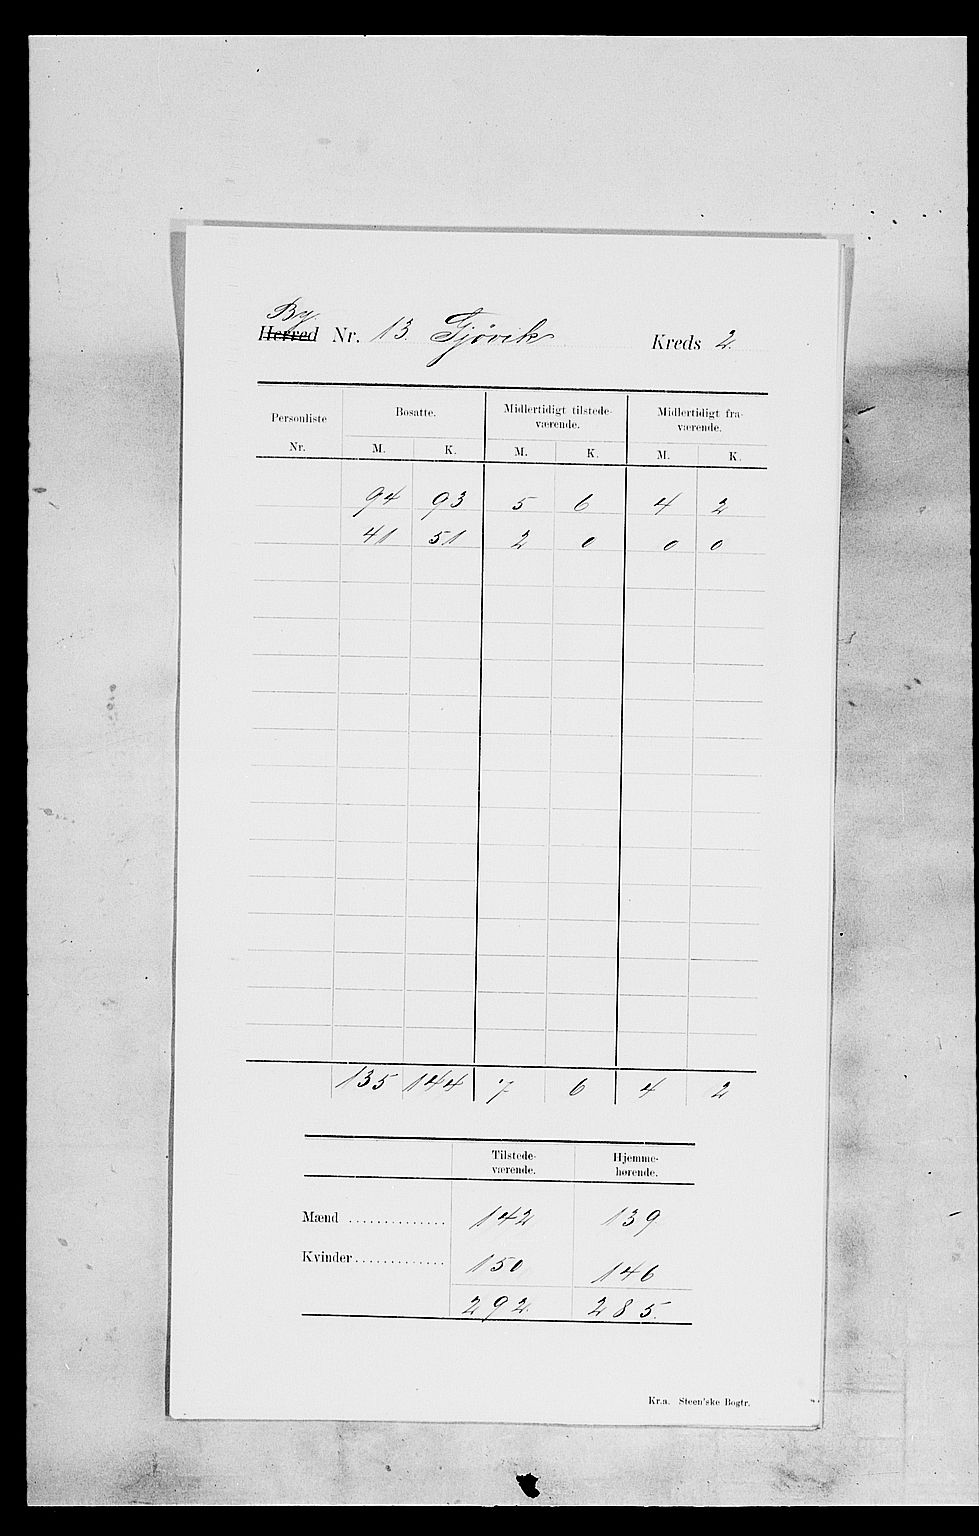 By
Herred Nr. 13. Gjøvik Kreds 2.
Personliste Nr. Bosatte. Midlertidigt tilstede- værende. Midlertidigt fra- værende.
M. K. M. K. M. K.
94 93 5 6 4 2
41 51 2 0 0 0
135 144 7 6 4 2
Tilstede- værende. Hjemme- hørende.
Mænd .............. 142 139
Kvinder ............. 150 146
292 285.
Kr.a. Steen'ske Bogtr.